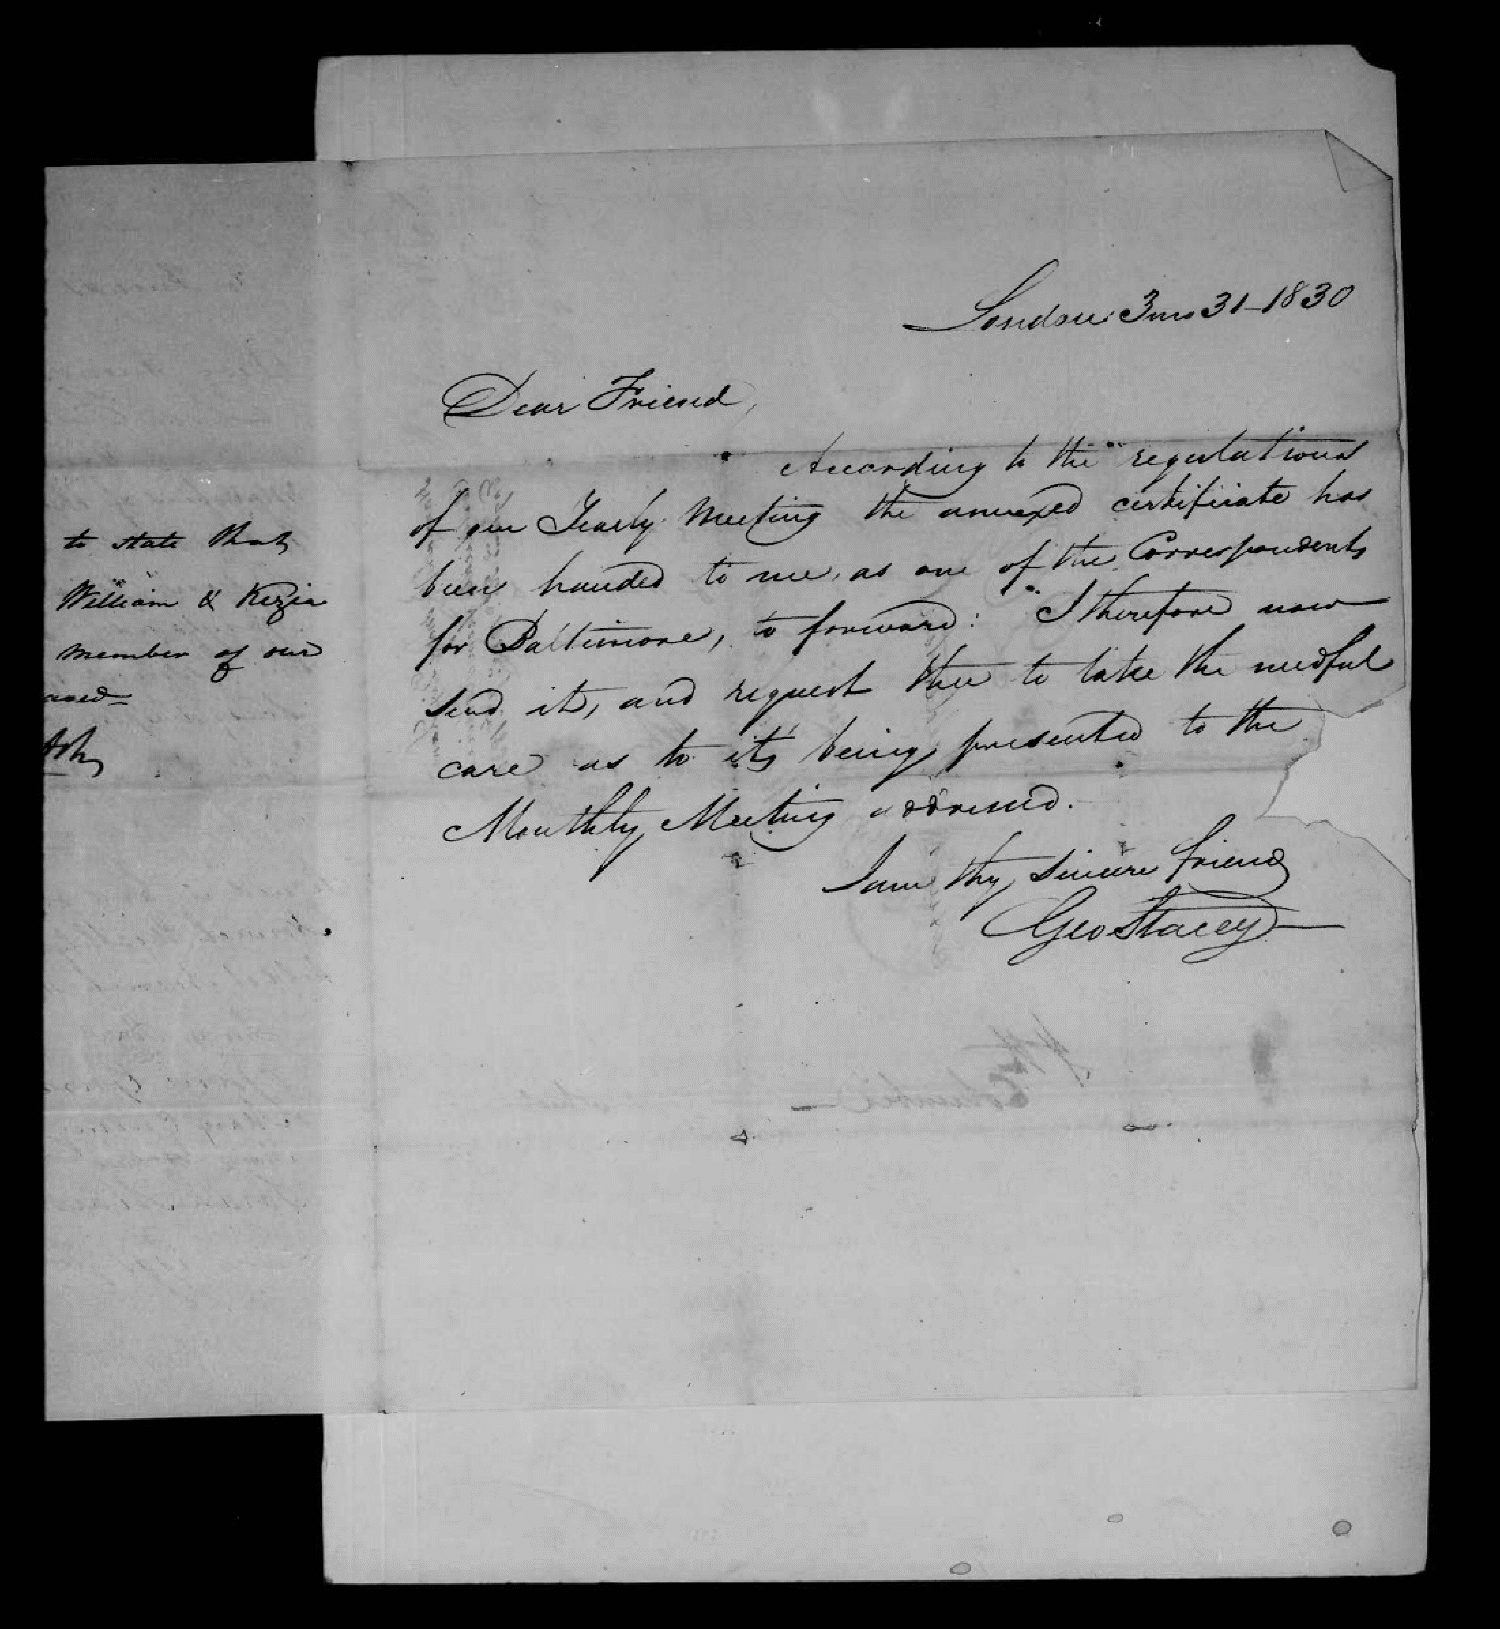 London 3mo 31-1830
Dear Friend,
According to the regulations
of our Yearly Meeting the annexed certificate has
been handed to me, as one of the Correspondents
for Baltimore, to forward: I therefore now
send it, and request thee to take the needful
care as to its being presented to the
Monthly Meeting addressed.
I am thy sincere friend
Geo Stacey
to state that
William & Kezia
member of our